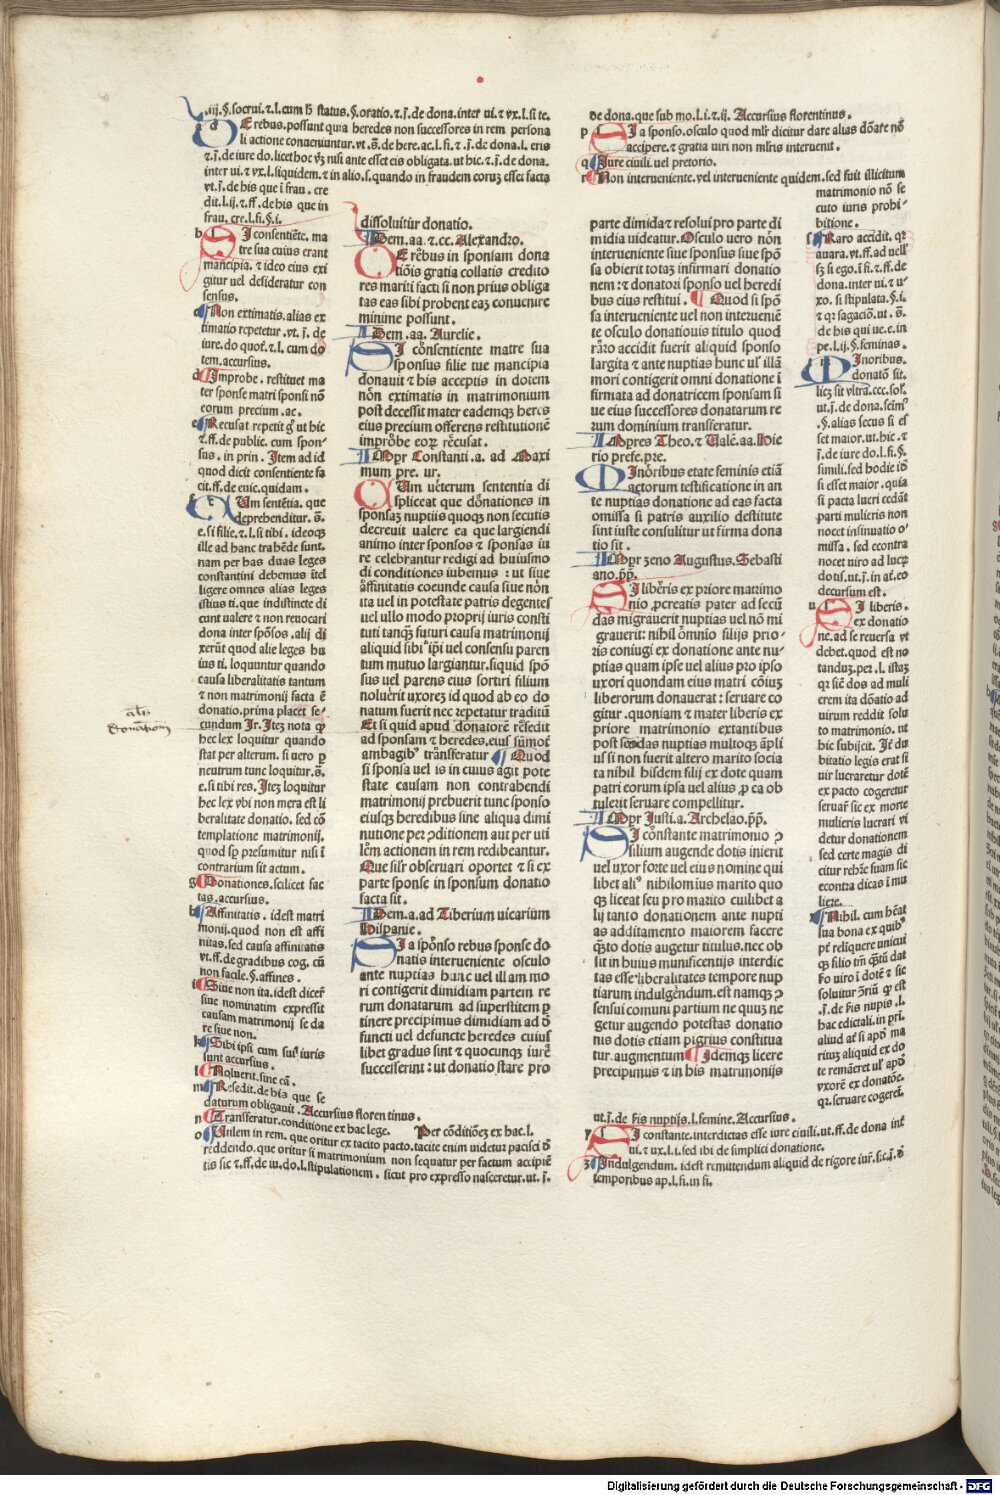 .iij. §. socrui. ⁊.l. cum hˀ status. §. oratio. ⁊.j̄. de dona. inter ui. ⁊ vx. l. si te.
a d
E rebus. possunt quia heredes non successores in rem persona
li actione conueniuntur. vt.s̄. de here. ac. l. fi. ⁊.j̄. de dona. l. eris
⁊.j̄. de iure do. licet hoc
nisi ante esset eis obligata. ut hic. ⁊.j̄. de dona.
inter ui. ⁊ vx. l. siquidem. ⁊ in alio. s. quando in fraudem
esset facta
vt.j̄. de his que ī frau. cre
dit. l. ij. ⁊.ff. de his que in
frau. cre. l. fi. §. i.
b
I consentiēte. ma
tre sua cuius erant
mancipia. ⁊ ideo eius exi
gitur uel desideratur con
sensus.
c Non extimatis. alias ex
timatio repetetur. vt.j̄. de
iure. do. quot̄. ⁊ l. cum do
tem. accursius.
d Improbe. restituet ma
ter sponse matri sponsi nō
eorum precium. ac.
e Recusat repetit
ut hic
⁊.ff. de public. cum spon-
sus. in prin. Item ad id
quod dicit consentiente fa
cit.ff. de euic. quidam.
f
Um sentētia. que
deprehenditur. s̄.
e. si filie. ⁊. l. si tibi. ideoqȝ
ille ad hanc trahēde sunt.
nam per has duas leges
constantini debemus ītel
ligere omnes alias leges
istius ti. que indistincte di
cunt ualere ⁊ non reuocari
dona inter spōsos. alij di
xerūt quod alie leges hu
ius ti. loquuntur quando
causa liberalitatis tantum
⁊ non matrimonij facta ē
donatio. prima placet se-
cundum Ir. Itez nota
hec lex loquitur quando
stat per alterum. si uero p̱
neutrum tunc loquitur. s̄.
e. si tibi res. Itez loquitur
hec lex vbi non mera est li
beralitate donatio. sed cō
templatione matrimonij.
quod
presumitur nisi ī
contrarium sit actum.
g Donationes. scilicet fac
tas. accursius.
h Affinitatis. idest matri
monij. quod non est affi
nitas. sed causa affinitatis
vt.ff. de gradibus cog. cū
non facile. §. affines.
i Siue non ita. idest dicer̄
siue nominatim expressit
causam matrimonij se da
re siue non.
k Sibi ipsi cum
iuris
sunt accursius.
l Noluerit. sine cā.
m Resedit. de his que se
daturum obligauit. Accursius floren tinus.
n Transferatur. conditione ex hac lege. Per cōditiōez ex hac. l.
o Uulem in rem. que oritur ex tacito pacto. tacite enim uidetur pacisci
reddendo. que oritur si matrimonium non sequatur per factum accipiē
tis sic ⁊.ff. de iu. do. l. stipulationem. sicut pro expresso nasceretur. ut.j̄.
dissoluitur donatio.
Idem. aa. ⁊. cc. Alexandro.
E rēbus in sponsam dona
tiōis gratia collatis credito
res mariti facti si non prius obliga
tas eas sibi probent eaȝ conuenire
minime possunt.
Idem. aa. Aurelie.
I cōnsentiente matre sua
sponsus filie tue mancipia
donauit ⁊ his acceptis in dotem
nōn extimatis in matrimonium
post decessit mater eademqȝ heres
eius precium offerens restitutionē
imprōbe eorȝ rēcusat.
Impr Constanti. a. ad Maxi
mum pre. ur.
Um uēterum sententia di
spliceat que dōnationes in
sponsaȝ nuptiis quoqȝ non secutis
decreuit ualere ea que largiendi
animo inter sponsos ⁊ sponsas iu
re celebrantur redigi ad huiusmo
di conditiones iubemus : ut siue
āffinitatis coeunde causa siue nōn
ita uel in potestate patris degentes
uel ullo modo proprij iuris consti
tuti tanqȝ futuri causa matrimonij
aliquid sibi
uel consensu paren
tum mutuo largiantur. siquid spō
sus uel parens eius sortiri filium
noluērit uxoreȝ id quod ab eo do
natum fuerit nec repetatur traditū
Et si quid apud donatorē rēsedit
ad sponsam ⁊ heredes. eius
ambagibˀ trānsferatur Quod
si sponsa uel is in cuius agit pote
state causam non contrahendi
matrimonij prebuerit tunc sponso
eiusqȝ heredibus sine aliqua dimi
nutione per ɔditionem aut per uti
lēm actionem in rem redibeantur.
Que
obseruari oportet ⁊ si ex
parte sponse in sponsum donatio
facta sit.
Idem. a. ad Tiberium uicarium
hispanie.
I a spōnso rebus sponse do
natis interueniente osculo
ante nuptias hunc uel illam mo
ri contigerit dimidiam partem re
rum donatarum ad superstitem p̱
tinere precipimus dimidiam ad
functi uel defuncte heredes cuius
libet gradus sint ⁊ quocunqȝ iurē
successerint : ut donatio stare pro
de dona. que sub mo. l. i. ⁊. ij. Accursius florentinus.
p
I a sponso. osculo quod
dicitur dare alias dōate
accipere. ⁊ gratia uiri non
interuenit.
q Iure ciuili. uel pretorio.
r Non interueniente. vel interueniente quidem. sed fuit illicitum
matrimonio nō se
cuto iuris prohi-
bitione.
s Raro accidit.
auara. vt.ff. ad uell'
sȝ si ego. ī fi. ⁊.ff. de
dona. inter ui. ⁊ u-
xo. si stipulata. §. i.
⁊
sagaciō. ut. s̄.
de his qui ue. e. in
pe. l. ij. §. feminas.
t
Inoribus.
donatō sit.
licȝ sit vltra. ccc.
ut.j̄. de dona.
§. alias secus si es
set maior. ut. hic. ⁊
.j̄. de iure do. l. fi. §.
simili. sed hodie id
si esset maior. quia
si pacta lucri cedāt
parti mulieris non
nocet insinuatio o-
missa. sed econtra
nocet uiro ad lucȝ
dotis. ut.j̄. in
decursum est.
u
I liberis.
ex donatio
ne. ad se reuersa vt
debet. quod est no
tanduȝ. per. l. istaȝ
siē dos ad muli
erem ita dōatio ad
uirum reddit solu
to matrimonio. ut
hic subijcit. Ie du
bitatio legis erat si
uir lucraretur dotē
ex pacto cogeretur
seruar̄ sic ex morte
mulieris lucrari vi
detur donationem
sed certe magis di
citur rehr̄e suam sic
econtra dicas ī mu
liere.
x Nihil. cum hēat
ina bona ex quibˀ
relīquere unicui
qȝ filio
dat
uiro ī dotē ⁊ sic
soluitur
est
.j̄. de
nupis. l.
hac edictali. in pri.
aliud
si
ma
riuȝ aliquid ex do
te remāeret
vxorē ex donatōe.
seruare cogeret̄.
parte dimida ⁊ resolui pro parte di
midia uideatur. Osculo uero nōn
interueniente siue sponsus siue spōn
sa obierit totaȝ infirmari donatio
nem : ⁊ donatoȝi sponso uel heredi
bus eius restitui. Quod si spō
sa interueniente uel non interueniē
te osculo donationis titulo quod
rāro accidit fuerit aliquid sponso
largita ⁊ ante nuptias hunc ulˀ illā
mori contigerit omni donatione ī
firmata ad donatricem sponsam si
ue eius successores donatarum re
rum dominium transferatur.
Impres Theo. ⁊ Valē. aa. Hie
rio prefe. pre.
Inōribus etate feminis etiā
actorum testificatione in an
te nuptias donatione ad eas facta
omissa si patris auxilio destitute
sint iuste consulitur ut firma dona
tio sit.
Impr zeno Augustus. Sebasti
ano. p̄p̄.
I libēris ex priore matrimo
nio ,pcreatis pater ad secū
das migrauerit nuptias uel nō mi
grauerit: nihil ōmnio filijs prio-
ris coniugi ex donatione ante nu-
ptias quam ipse uel alius pro ipso
uxori quondam eius matri cōiuȝ
liberorum donauerat : seruare co
gitur. quoniam ⁊ mater liberis ex
priore matrimonio extantibus
post secōdas nuptias multoqȝ āpli
us si non fuerit altero marito socia
ta nihil hisdem filij ex dote quam
patri eorum ipsa uel alius p̱ ea ob
tulerit seruare compellitur.
Impr Iusti. a. Archelao. p̄p̄.
I cōnstante matrimonio ɔ
silium augende dotis inierit
uel uxor forte uel eius nomine qui
libet aliˀ nihilomius marito quo
qȝ liceat seu pro marito cuilibet a
lij tanto donationem ante nupti
as additamento maiorem facere
dotis augetur titulus. nec ob
sit in huius munificentijs interdic
tas esse liberalitates tempore nup
tiarum indulgēndum. est namqȝ ɔ
sensui comuni partium ne quuȝ ne
getur augendo potestas donatio
nis dotis etiam pigrius constitua
tur. augmentum Idemqȝ licere
precipimus ⁊ in his matrimonijs
ut.j̄. de
nuptijs. l. femine. Accursius.
y
I constante. interdictas esse iure ciuili. ut.ff. de dona int̄
ui. ⁊ ux. l. i. sed ibi de simplici donatione.
z Indulgendum. idest remittendum aliquid de rigore iur̄. sic.j̄.
temporibus ap. l. fi. in fi.
Donationem
Digitalisierung gefördert durch die Deutsche Forschungsgemeinschaft - DFG